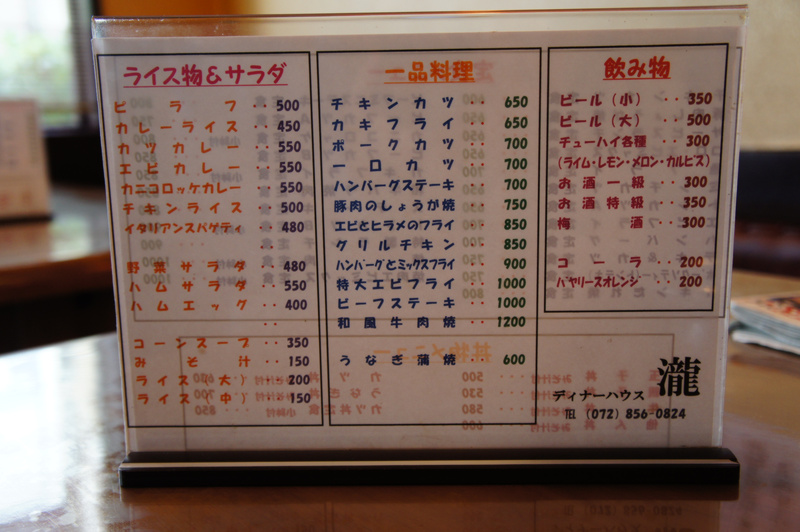 ライス物&サラダ
ピラフ ‥ 500
カレーライス ‥ 450
カツカレー ‥ 550
エビカレー ‥ 550
カニコロッケカレー ‥ 550
チキンライス ‥ 500
イタリアンスパゲティ ‥ 480
野菜サラダ ‥ 480
ハムサラダ ‥ 550
ハムエッグ ‥ 400
コーンスープ ‥ 350
みそ汁 ‥ 150
ライス(大) ‥ 200
ライス(中) ‥ 150
一品料理
チキンカツ ‥ 650
カキフライ ‥ 650
ポークカツ ‥ 700
一口カツ ‥ 700
ハンバーグステーキ ‥ 700
豚肉のしょうが焼 ‥ 750
エビとヒラメのフライ ‥ 850
グリルチキン ‥ 850
ハンバーグとミックスフライ ‥ 900
特大エビフライ ‥ 1000
ビーフステーキ ‥ 1000
和風牛肉焼 ‥ 1200
うなぎ蒲焼 ‥ 600
飲み物
ビール(小) ‥ 350
ビール(大) ‥ 500
チューハイ各種 ‥ 300
(ライム・レモン・メロン・カルピス)
お酒一級 ‥ 300
お酒特級 ‥ 350
梅酒 ‥ 300
コーラ ‥ 200
バヤリースオレンジ ‥ 200
ディナーハウス 瀧
TEL (072) 856-0824